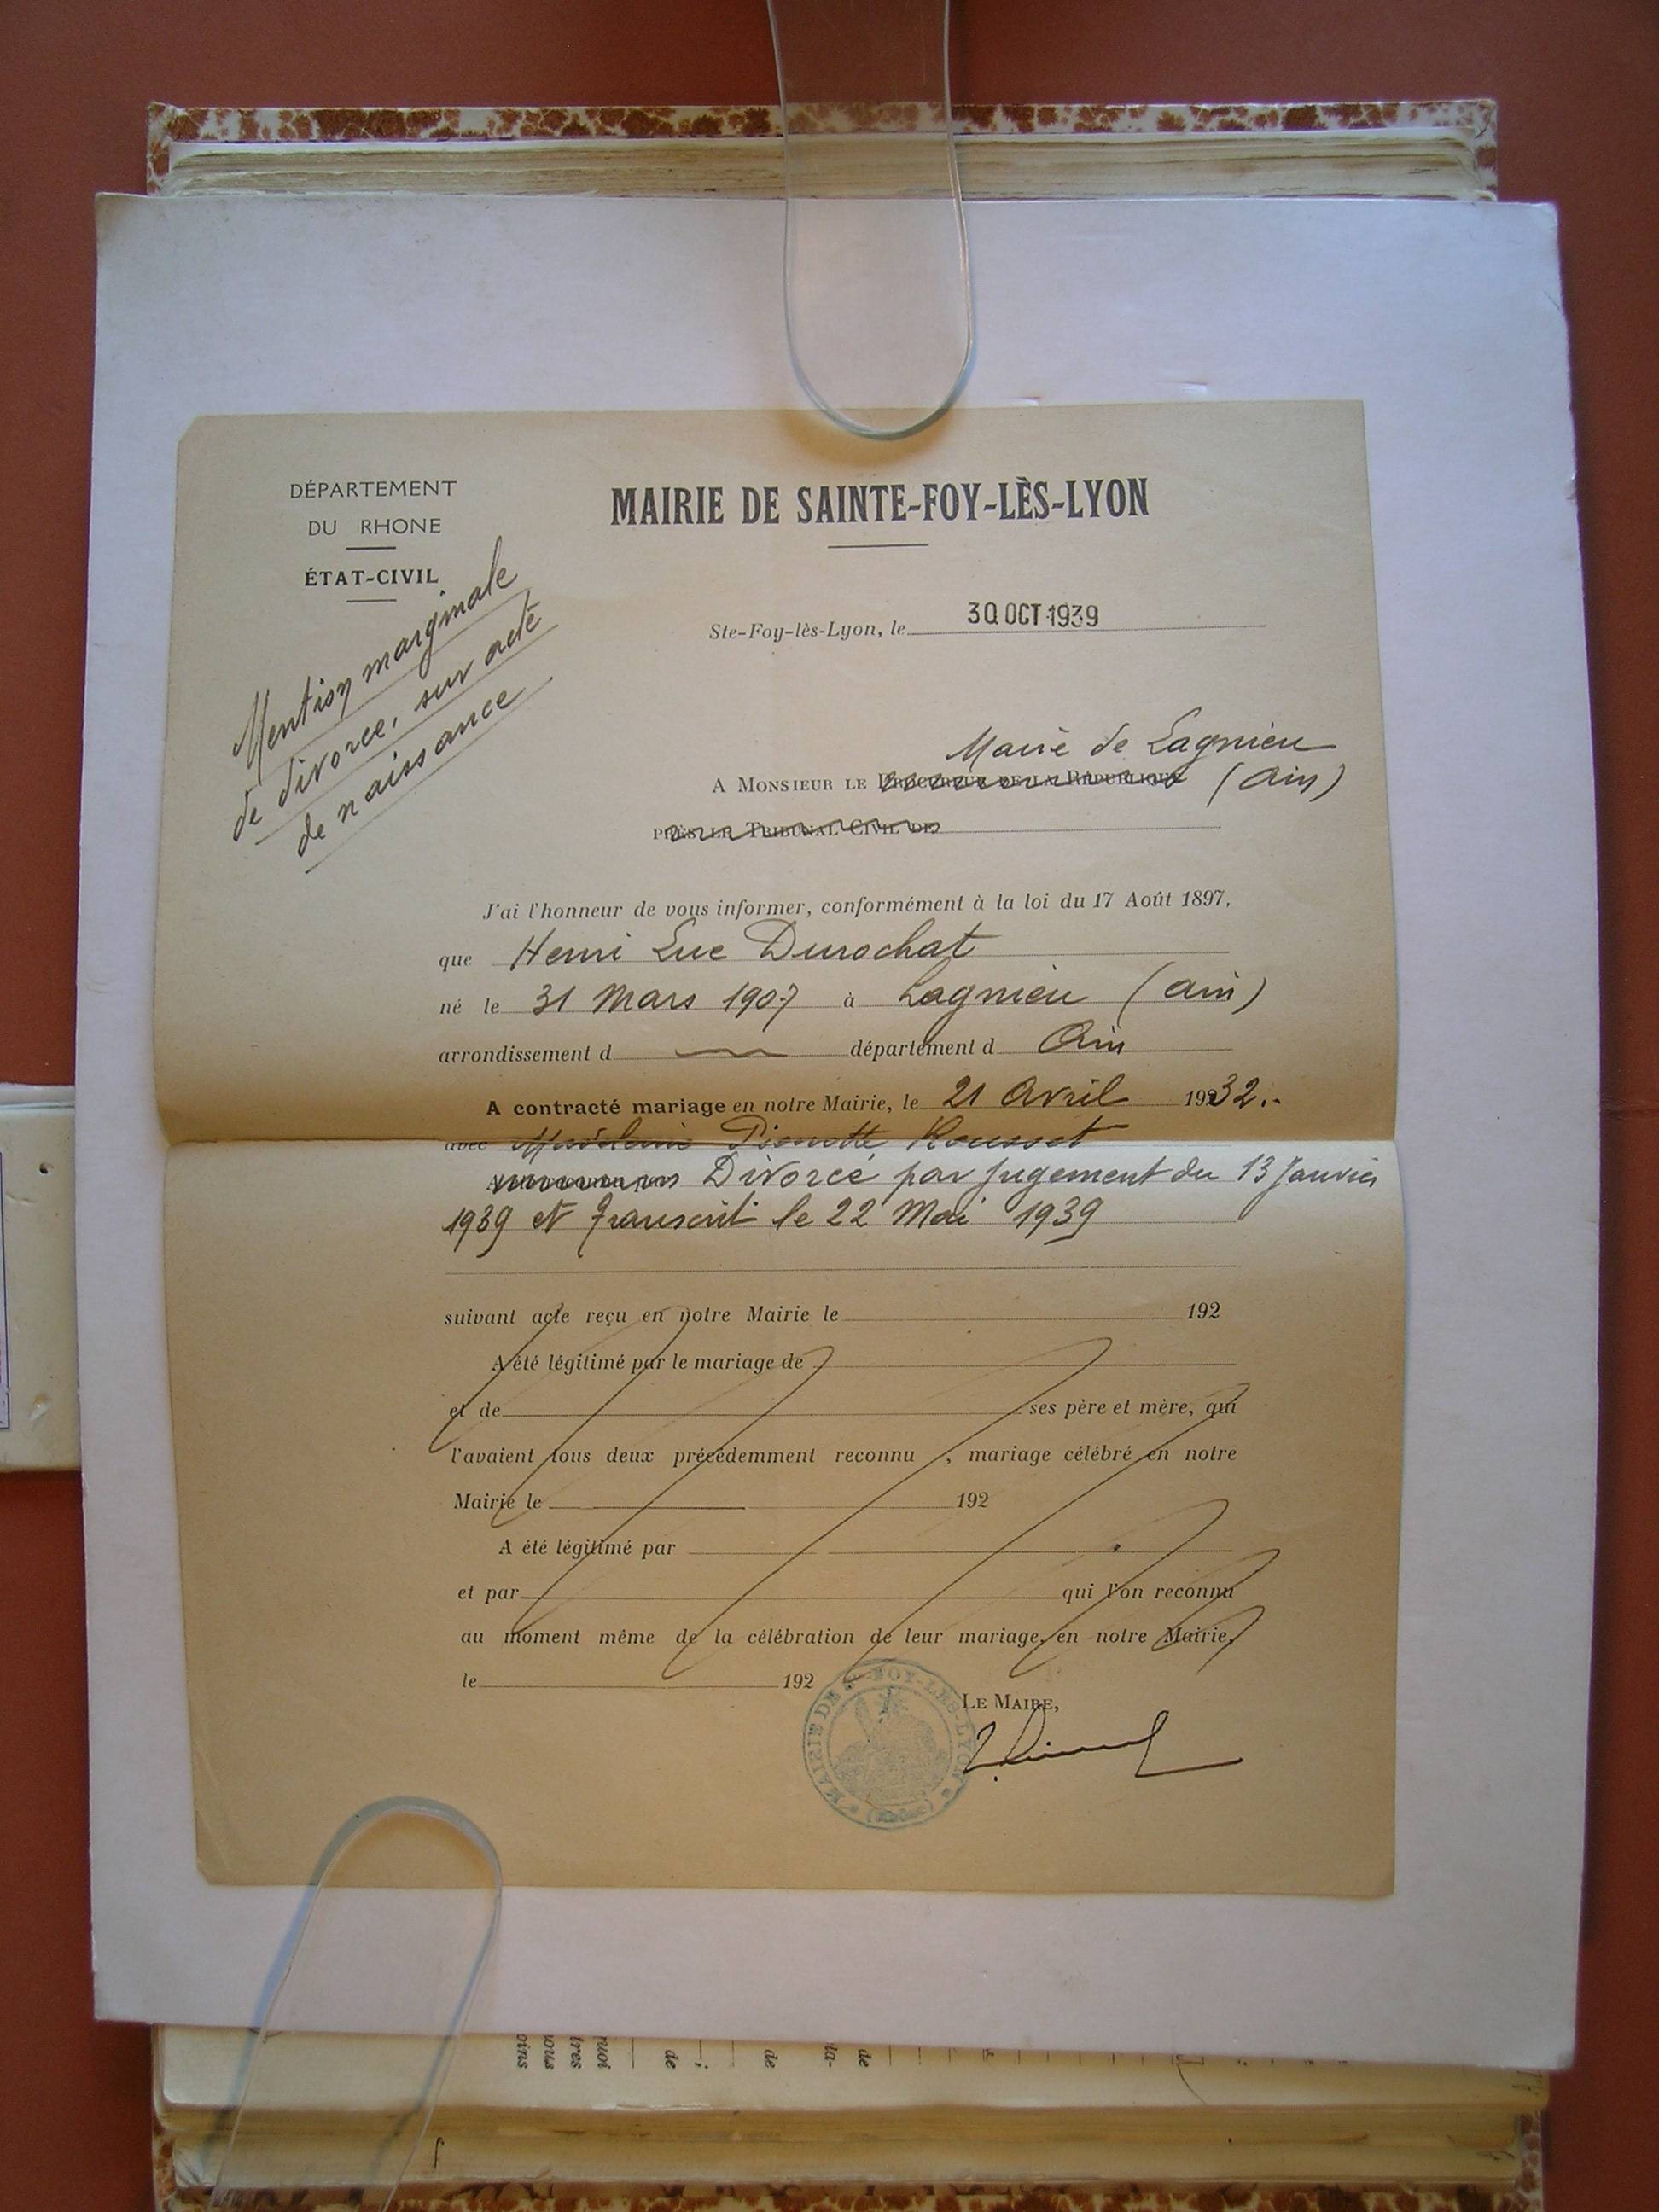 DÉPARTEMENT
DU RHONE
ÉTAT-CIVIL
Mention marginale
de divorce, sur acte
de naissance
MAIRIE DE SAINTE-FOY-LÈS-LYON
Ste-Foy-lès-Lyon, le 30 OCT 1939
Maire de Lagnieu
A MONSIEUR LE PROCUREUR DE LA RÉPUBLIQUE (Ain)
PRÈS LE TRIBUNAL CIVIL DE
J'ai l'honneur de vous informer, conformément à la loi du 17 Août 1897,
que Henri Luc Durochat
né le 31 Mars 1907 à Lagnieu (Ain)
arrondissement d département d Ain
A contracté mariage en notre Mairie, le 21 Avril 1932.
avec Madeleine Pierrette Rousset
Divorcé par jugement du 13 Janvier
1939 et transcrit le 22 Mai 1939
suivant acte reçu en notre Mairie le 192
A été légitimé par le mariage de
et de ses père et mère, qui
l'avaient tous deux précédemment reconnu , mariage célébré en notre
Mairie le 192
A été légitimé par
et par qui l'on reconnu
au moment même de la célébration de leur mariage, en notre Mairie,
le 192
LE MAIRE,
MAIRIE DE Ste FOY-LES-LYON
oins
ous
tres
quoi
de
;
de
la-
de